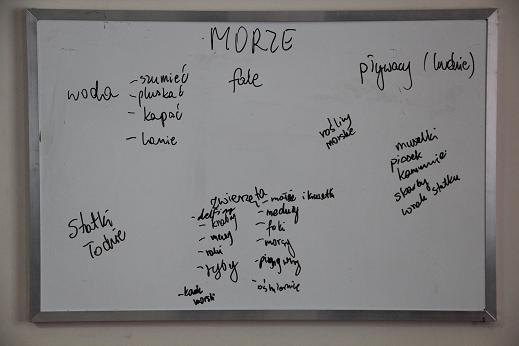 MORZE
woda
- szumieć
- pluskać
- kapać
- lanie
fale
pływacy (ludzie)
rośliny
morskie
muszelki
piasek
kamienie
skarby
wrak statku
Statki
Łodzie
zwierzęta
- delfiny
- kraby
- mewy
- raki
- ryby
- konik
morski
- małże i
- meduzy
- foki
- morsy
- pingwiny
- ośmiornice